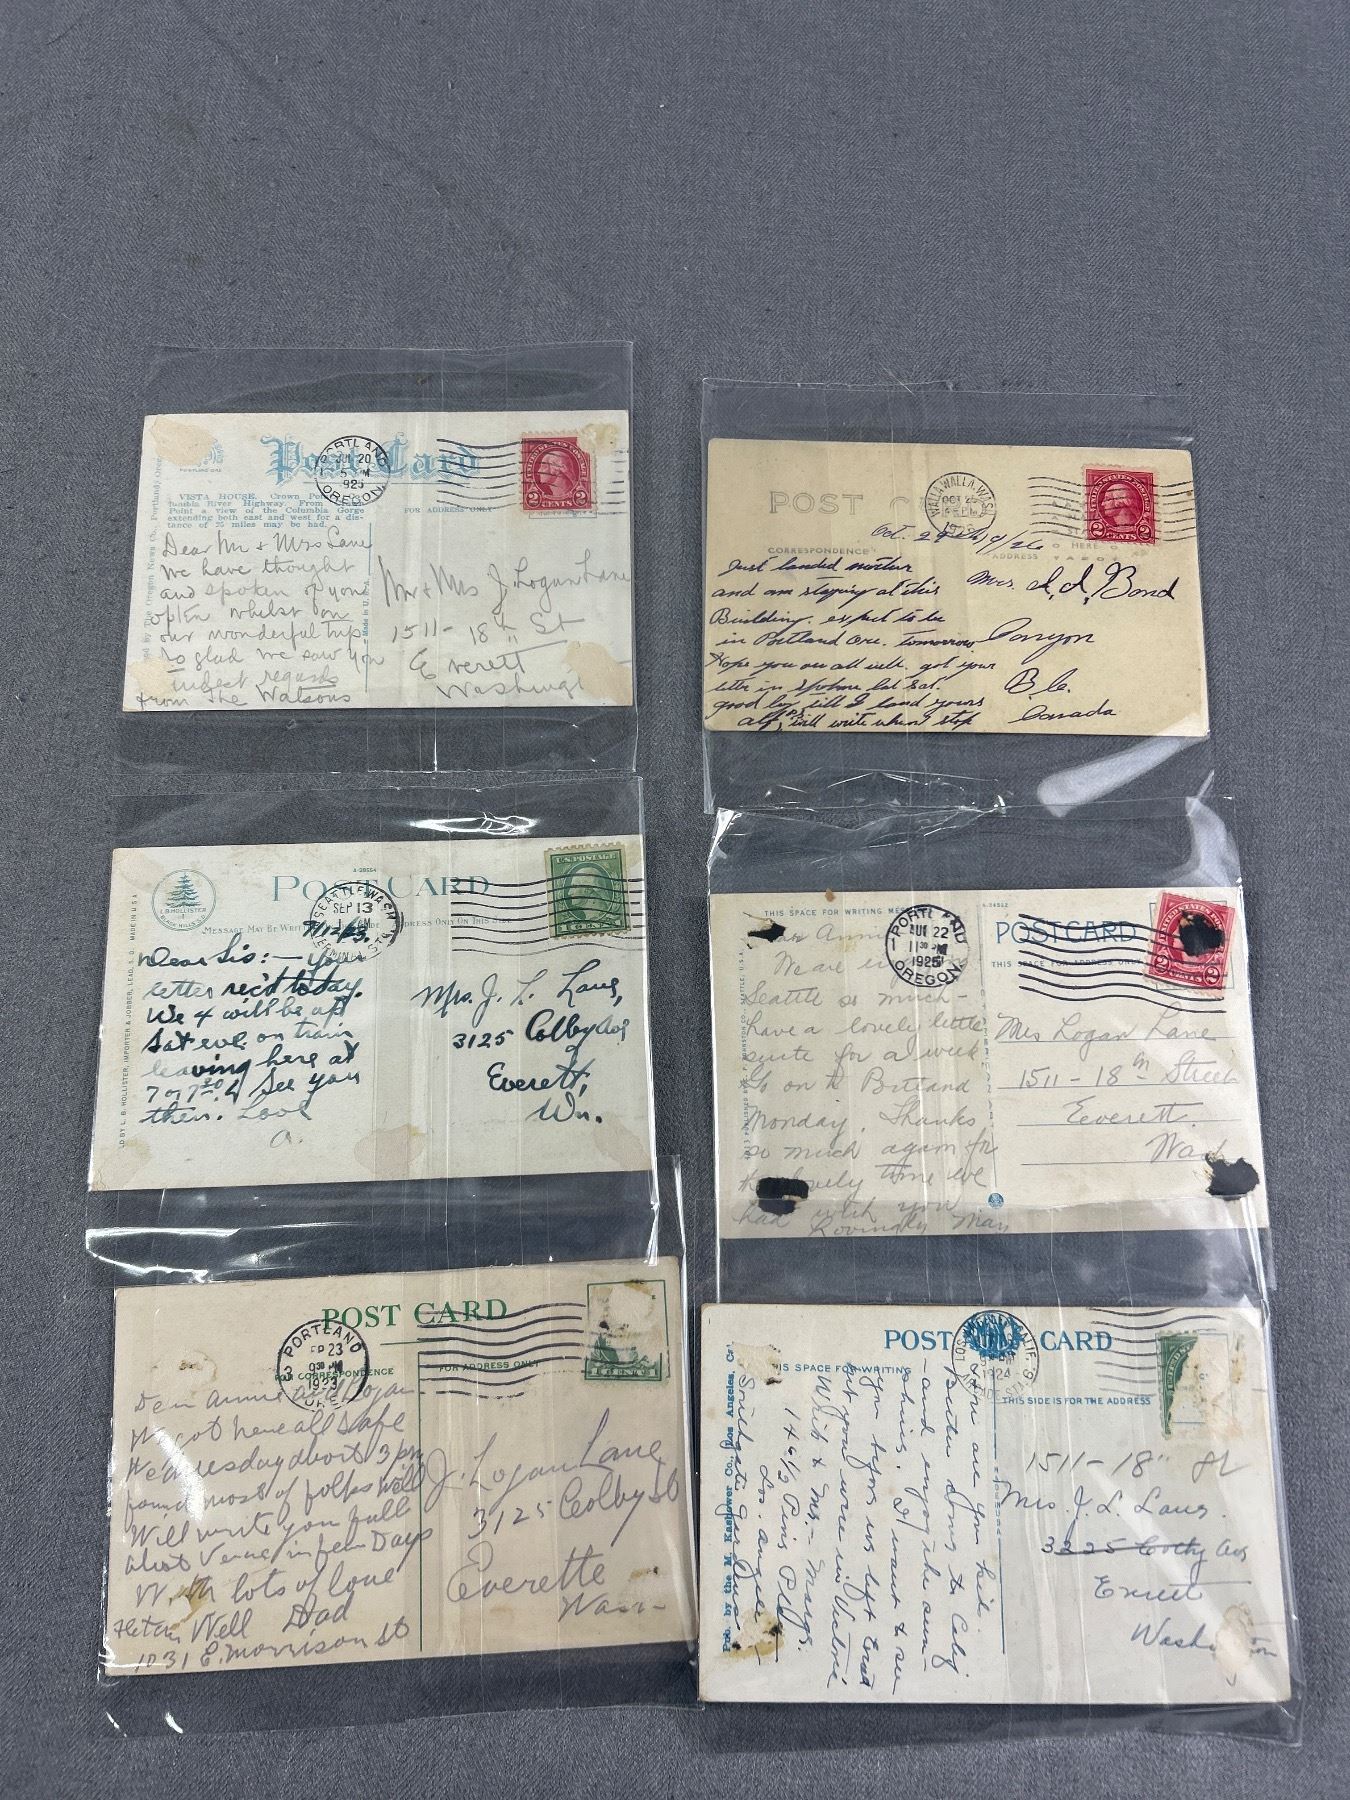 Post Card
PORTLAND
JUL 20
5 PM
1925
OREGON
2 CENTS 2
VISTA HOUSE. Crown Point
lumbia River Highway. From
Point a view of the Columbia Gorge
extending both east and west for a dis-
tance of 35 miles may be had.
FOR ADDRESS ONLY
Dear Mr & Mrs Lane
We have thought
and spoken of you
often whilst on
our wonderful trip
so glad we saw you
regards
from The Watsons
Mr & Mrs J. Logan Lane
1511 - 18th St
Everett
Washingt
POST CA
WALLA WALLA, WASH.
OCT
2 CENTS 2
HERE
CORRESPONDENCE
ADDRESS
Oct. 29th 1926
Just landed
and am staying at this
Building. expect to be
in Portland Ore. tomorrow
Hope you are all well. got your
letter in Spokane last Sat.
good by till I land yours
Alf, P.S. will write when I stop
Mrs. Bond
Canyon
B.C.
Canada
A-28554
POST CARD
L.B. HOLLISTER
SEATTLE, WASH.
SEP 13
U.S. POSTAGE
MESSAGE MAY BE WRITTEN
ADDRESS ONLY ON THIS SIDE
MADE IN U.S.A.
LD BY L. B. HOLLISTER, IMPORTER & JOBBER, LEAD, S. D.
Dear Sis:— Your
letter rec'd today.
We 4 will be up
Sat eve. on train
leaving here at
7 or 7 30. See you
then. Love
a.
Mrs. J. L. Lane,
3125 Colby Ave
Everett,
Wn.
THIS SPACE FOR WRITING MES
PORTLAND
AUG 22
11 30 PM
1925
OREGON
A-24512
POSTCARD
THIS SPACE FOR ADDRESS ONLY
Dear Annie
We are enjoying
Seattle so much -
have a lovely little
suite for a week
Go on to Portland
Monday. Thanks
so much again for
the lovely time we
had with you
Lovingly Mary
Mrs Logan Lane
1511 - 18th Street
Everett.
Wash
POST CARD
PORTLAND
SEP 23
9 30 PM
1923
ORE
FOR CORRESPONDENCE
FOR ADDRESS ONLY
Dear Annie and Logan
We got here all safe
Wednesday about 3 pm
found most of folks well
Will write you full
about Verne in few Days
With lots of love
Dad
Well
1031 E. Morrison St
J. Logan Lane
3125 Colby St
Everette
Wash
POST CARD
LOS ANGELES, CALIF.
1924
ARCADE STA.
THIS SPACE FOR WRITING
THIS SIDE IS FOR THE ADDRESS
Pub. by the M. Kashower Co., Los Angeles, Cal
You are you kid.
Better come to Calif
- and enjoy the sun-
shine. I want to see
you before we left but
but you were in Victoria
Mr & Mrs - Margs.
146 1/2 Pine Pl
Los Angeles
Southgate Gardens
1511 - 18" St
Mrs. J. L. Lane.
3225 Colby Ave
Everett
Wash